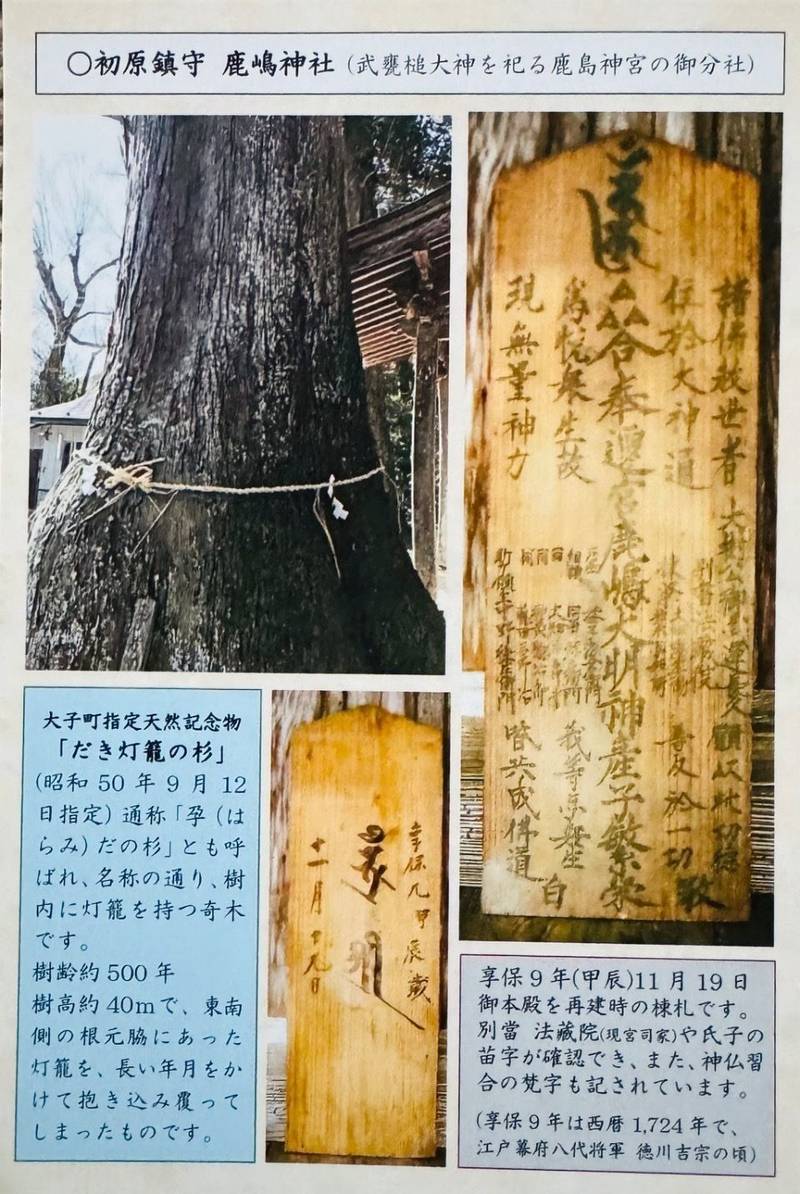 〇初原鎮守 鹿嶋神社(武甕槌大神を祀る鹿島神宮の御分社)
諸佛救世者
住於大神通
為悦衆生故
現無量神力
奉遷宮鹿嶋大明神産子繁栄
願以此功徳
普及於一切
我等与衆生
皆共成佛道
敬
白
大子町指定天然記念物
「だき灯籠の杉」
(昭和50年9月12
日指定)通称「孕(は
らみ)だの杉」とも呼
ばれ、名称の通り、樹
内に灯籠を持つ奇木
です。
樹齢約500年
樹高約40mで、東南
側の根元脇にあった
灯籠を、長い年月をか
けて抱き込み覆って
しまったものです。
享保九甲辰歳
十一月十九日
享保9年(甲辰)11月19日
御本殿を再建時の棟札です。
別當 法藏院(現宮司家)や氏子の
苗字が確認でき、また、神仏習
合の梵字も記されています。
(享保9年は西暦1,724年で、
江戸幕府八代将軍 徳川吉宗の頃)